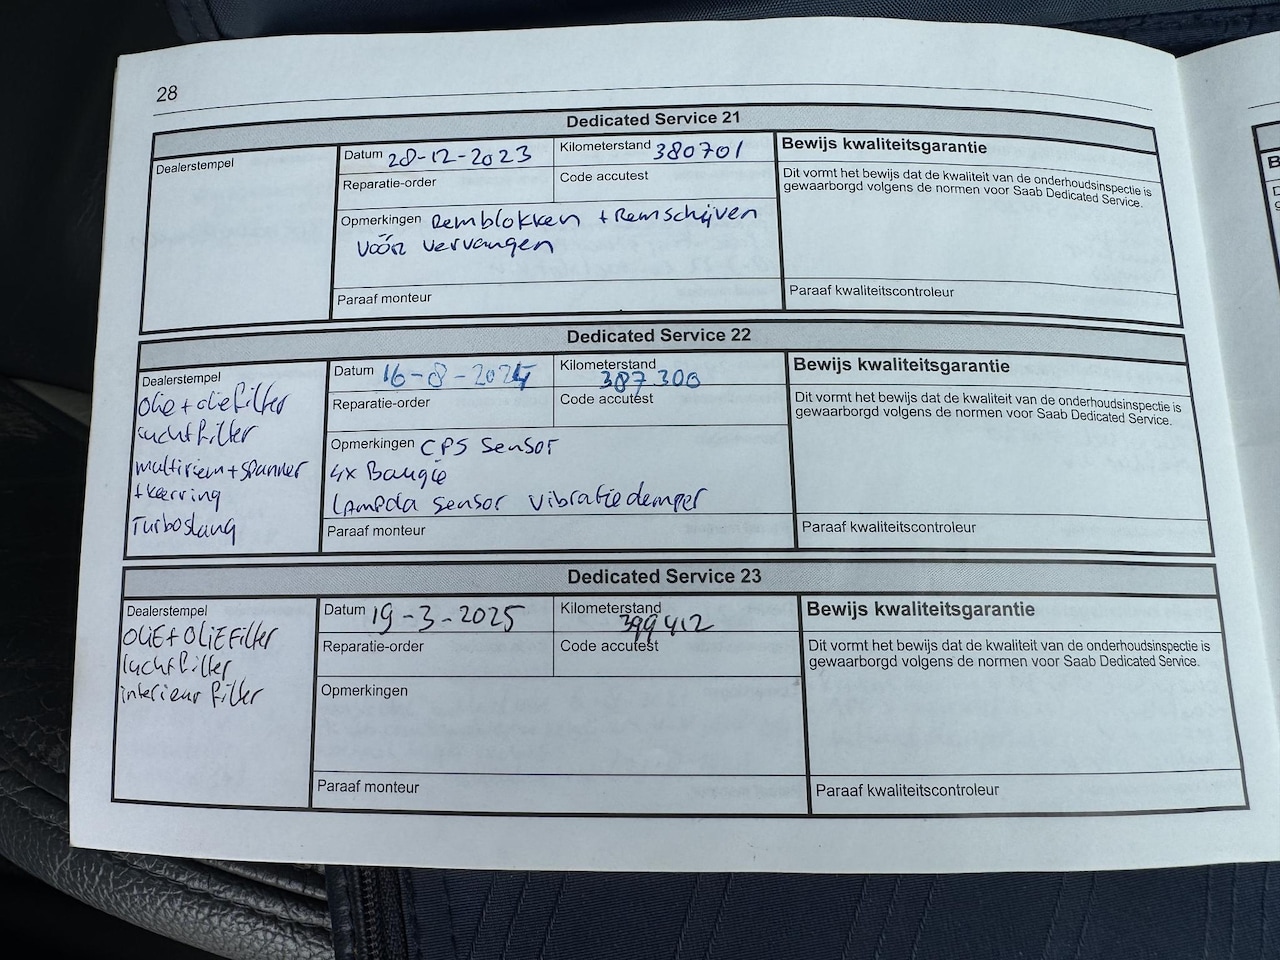 28
Dedicated Service 21
Dealerstempel
Datum 28-12-2023
Kilometerstand 380701
Reparatie-order
Code accutest
Opmerkingen Remblokken + Remschijven
vóór vervangen
Paraaf monteur
Bewijs kwaliteitsgarantie
Dit vormt het bewijs dat de kwaliteit van de onderhoudsinspectie is
gewaarborgd volgens de normen voor Saab Dedicated Service.
Paraaf kwaliteitscontroleur
Dedicated Service 22
Dealerstempel
olie + oliefilter
luchtfilter
multiriem + spanner
+ keerring
Turboslang
Datum 16-8-2024
Kilometerstand
387300
Reparatie-order
Code accutest
Opmerkingen CPS sensor
4x Bougie
Lampda sensor vibratiedemper
Paraaf monteur
Bewijs kwaliteitsgarantie
Dit vormt het bewijs dat de kwaliteit van de onderhoudsinspectie is
gewaarborgd volgens de normen voor Saab Dedicated Service.
Paraaf kwaliteitscontroleur
Dedicated Service 23
Dealerstempel
OLIE + OLIEFilter
luchtfilter
interieur filter
Datum 19-3-2025
Kilometerstand
399412
Reparatie-order
Code accutest
Opmerkingen
Paraaf monteur
Bewijs kwaliteitsgarantie
Dit vormt het bewijs dat de kwaliteit van de onderhoudsinspectie is
gewaarborgd volgens de normen voor Saab Dedicated Service.
Paraaf kwaliteitscontroleur